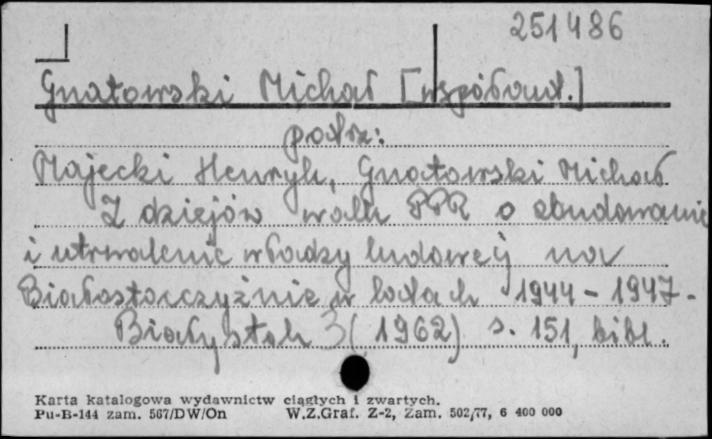 251486
Gnatowski Michał [współaut.]
patrz:
Majecki Henryk, Gnatowski Michał
Z dziejów walk PPR o zbudowanie
i utrwalenie władzy ludowej na
Białostocczyźnie w latach 1944-1947.
Białystok (1962) s. 151, bibl.
Karta katalogowa wydawnictw ciągłych i zwartych.
Pu-B-144 zam. 567/DW/On W.Z.Graf. Z-2, Zam. 502/77, 6 400 000